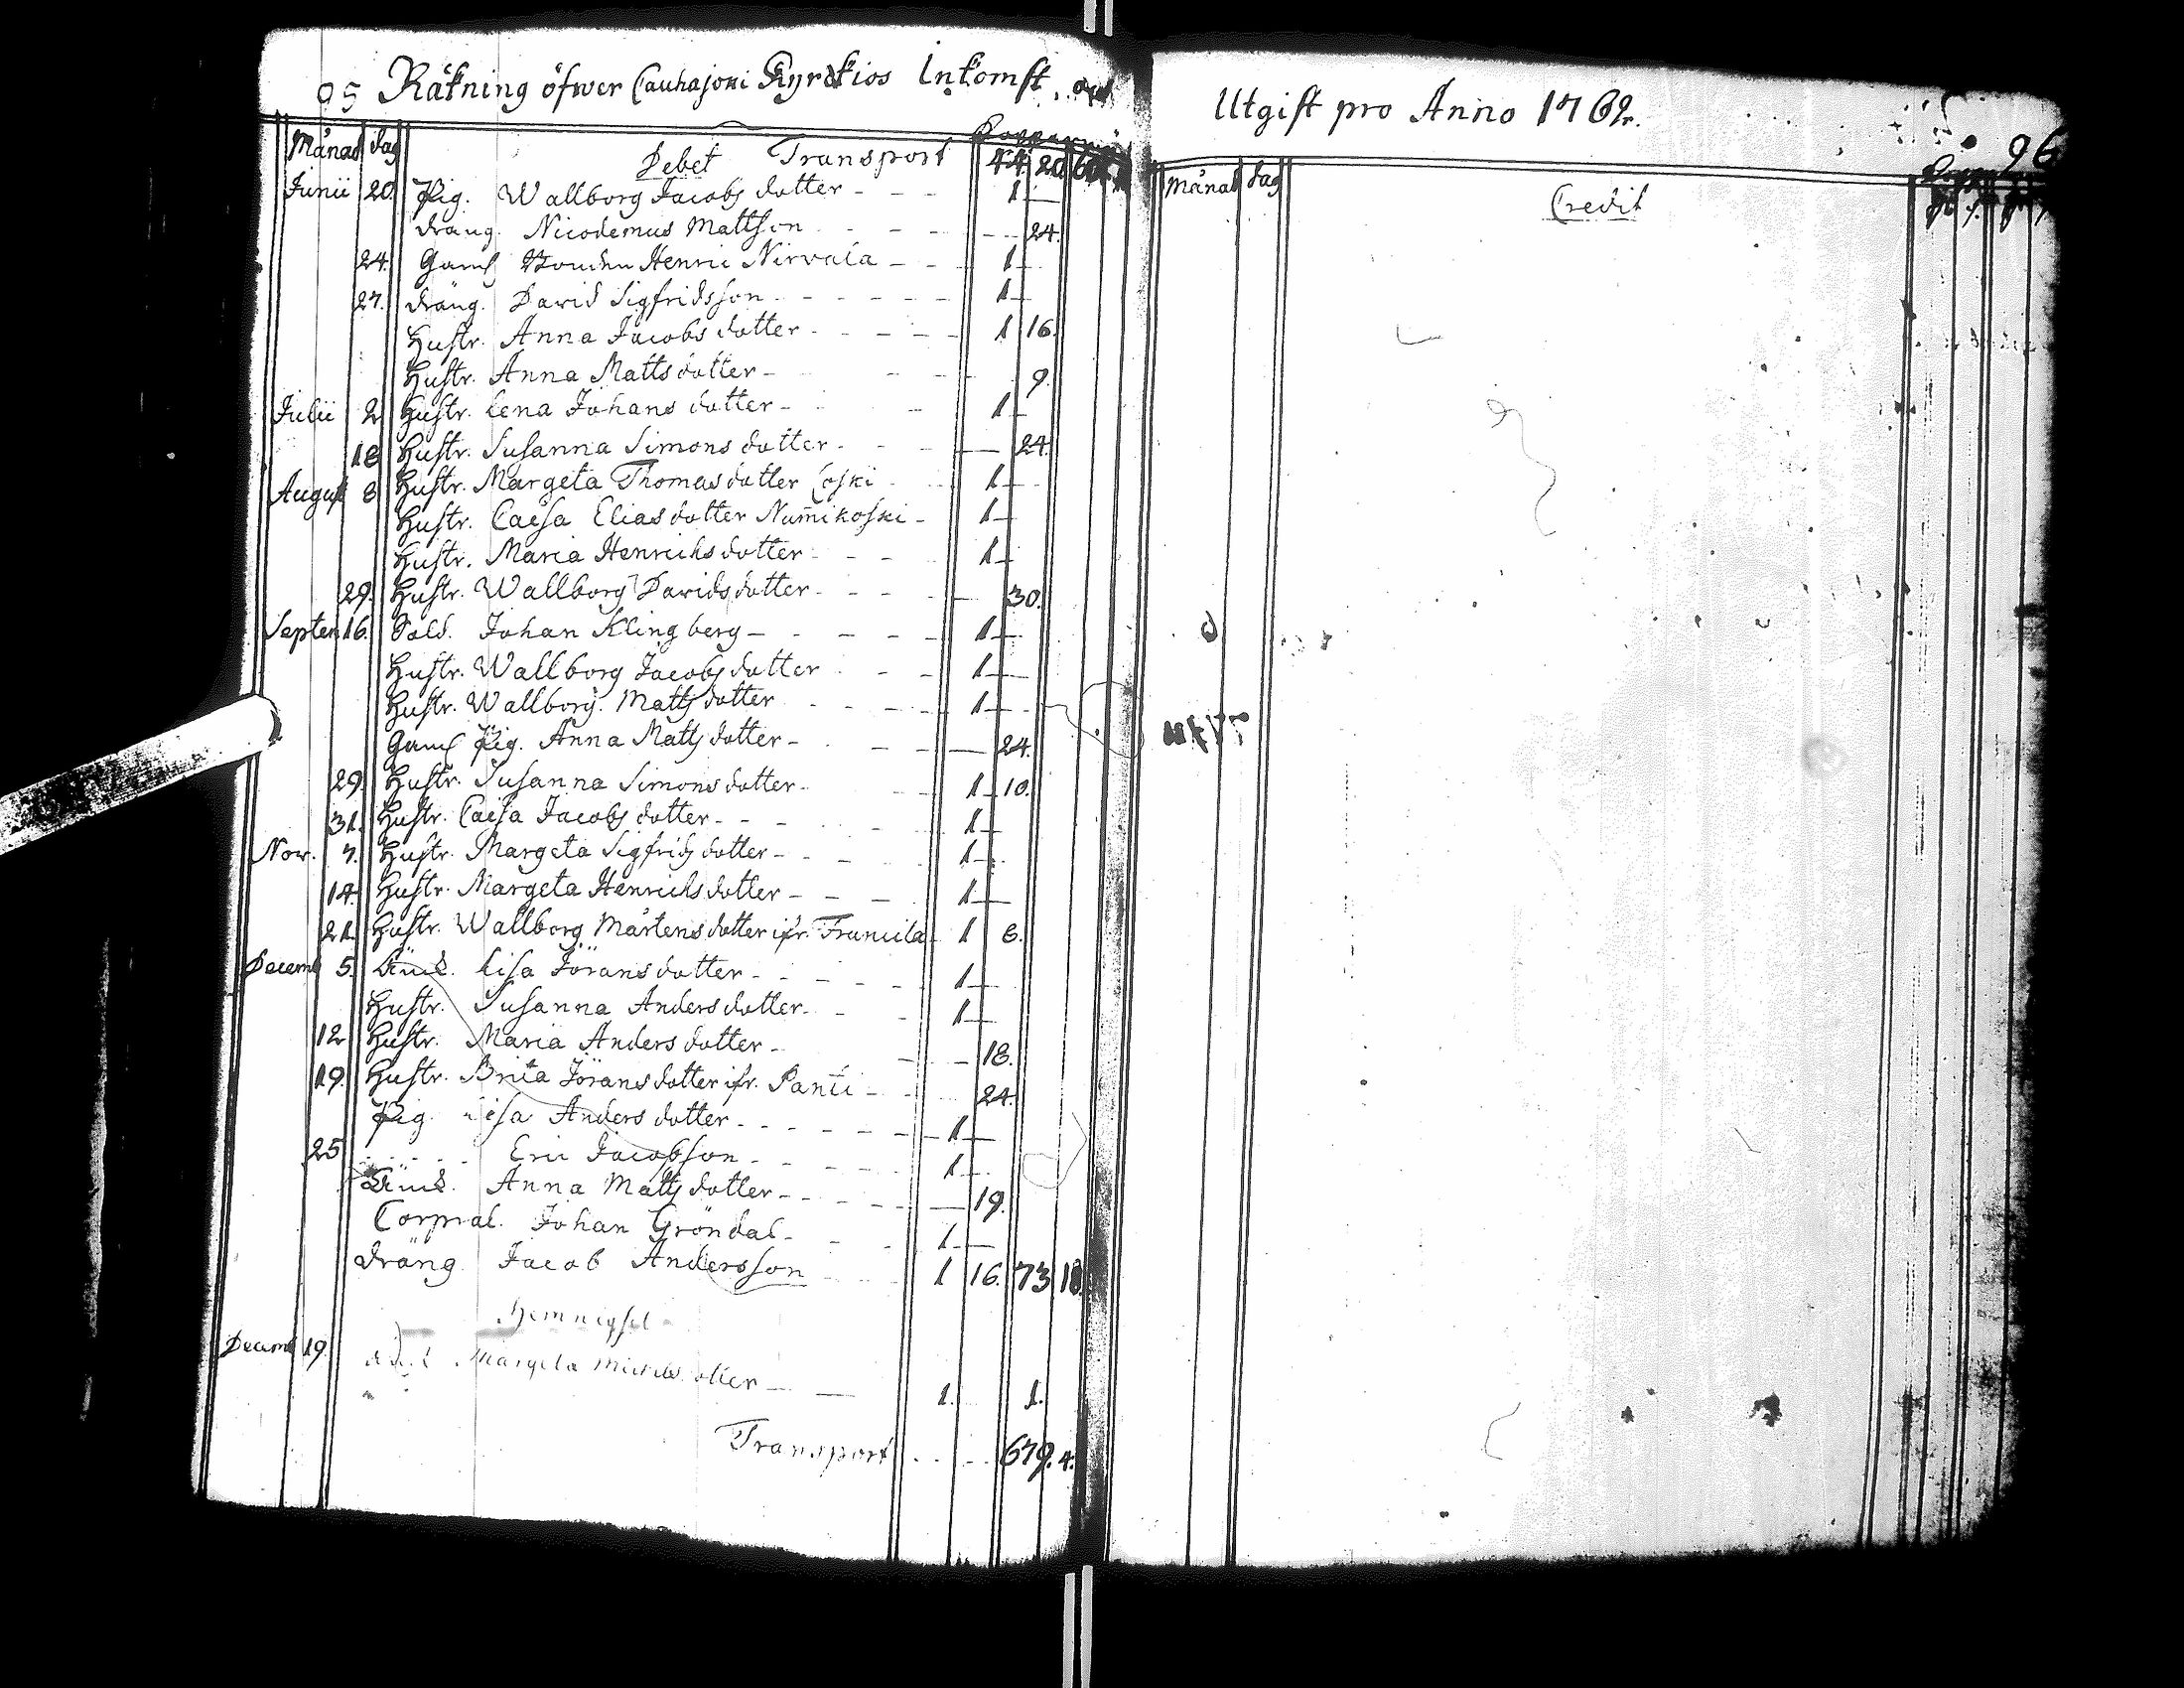 95 Räkning öfwer Cauhajoki Kyrckios Inkomst, och
Månad dag Debet Transport 44 20
Junii 20. Pig. Wallborg Jacobs dotter - - - 1 —
dräng. Nicodemus Mattson - - - 24.
24. Gaml Bonden Henric Nirvala - - 1 —
27. dräng. David Sigfridsson - - - - - 1 —
Hustr. Anna Jacobs dotter - - - - 1 16.
Hustr. Anna Matts dotter - - - 9.
Julii 2 Hustr. Lena Johans dotter - - - 1 —
18 Hustr. Susanna Simons dotter - - — 24.
August 8 Hustr. Margeta Thomas dotter Coski - 1 —
Hustr. Caisa Elias dotter Num̄ikoski - 1 —
Hustr. Maria Henrichs dotter - - - 1 —
29. Hustr. Wallborg Davids dotter - - - — 30.
Septem 16. Sold. Johan Klingberg - - - - - 1 —
Hustr. Wallborg Jacobs dotter - - - 1 —
Hustr. Wallborg Matts dotter - - - - 1 —
Gaml Pig. Anna Matts dotter - - - - — 24.
29. Hustr. Susanna Simons dotter - 1 10.
31. Hustr. Caisa Jacobs dotter - - - - 1 —
Nov. 7. Hustr. Margeta Sigfrids dotter - - - - 1 —
14. Hustr. Margeta Henrichs dotter - - - 1 —
21. Hustr. Wallborg Mårtens dotter ifr. - 1 8.
Decemb 5. Lisa Jörans dotter - - - - 1 —
Hustr. Susanna Anders dotter - - 1 —
12 Hustr. Maria Anders dotter - - — 18.
19. Hustr. Brita Jörans dotter ifr. Panti - - 24.
Pig. Lisa Anders dotter - - - - - - 1 —
25 Eric Jacobson - - - - 1 —
Anna Matts dotter - - - - - — 19.
Corpral. Johan Gröndal - - - 1 —
dräng Jacob Andersson - - 1 16. 73 18.
Decemb 19. Margeta dotter — — 1. 1.
Transport - - - - 679. 4.
Utgift pro Anno 1762.
96
Månad dag Credit